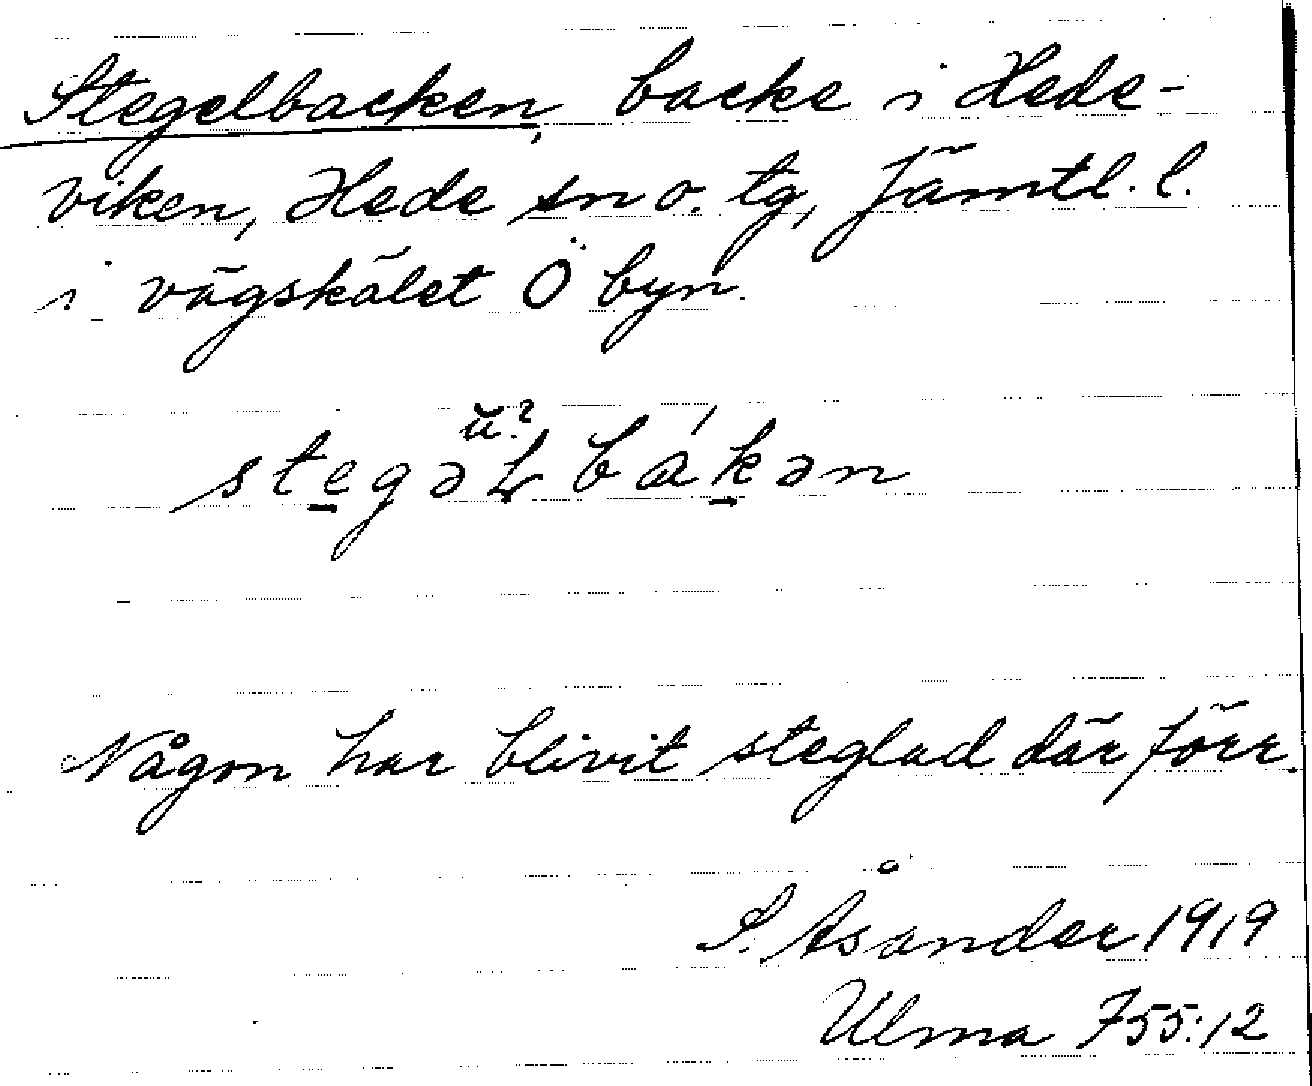 Stegelbacken, backe i Hede-
viken, Hede sn o. tg, Jämtl. l.
i vägskälet Ö byn.
ŭ?
stegəɫbákən
Någon har blivit steglad där förr.
S. Åsander 1919
Ulma 755:12